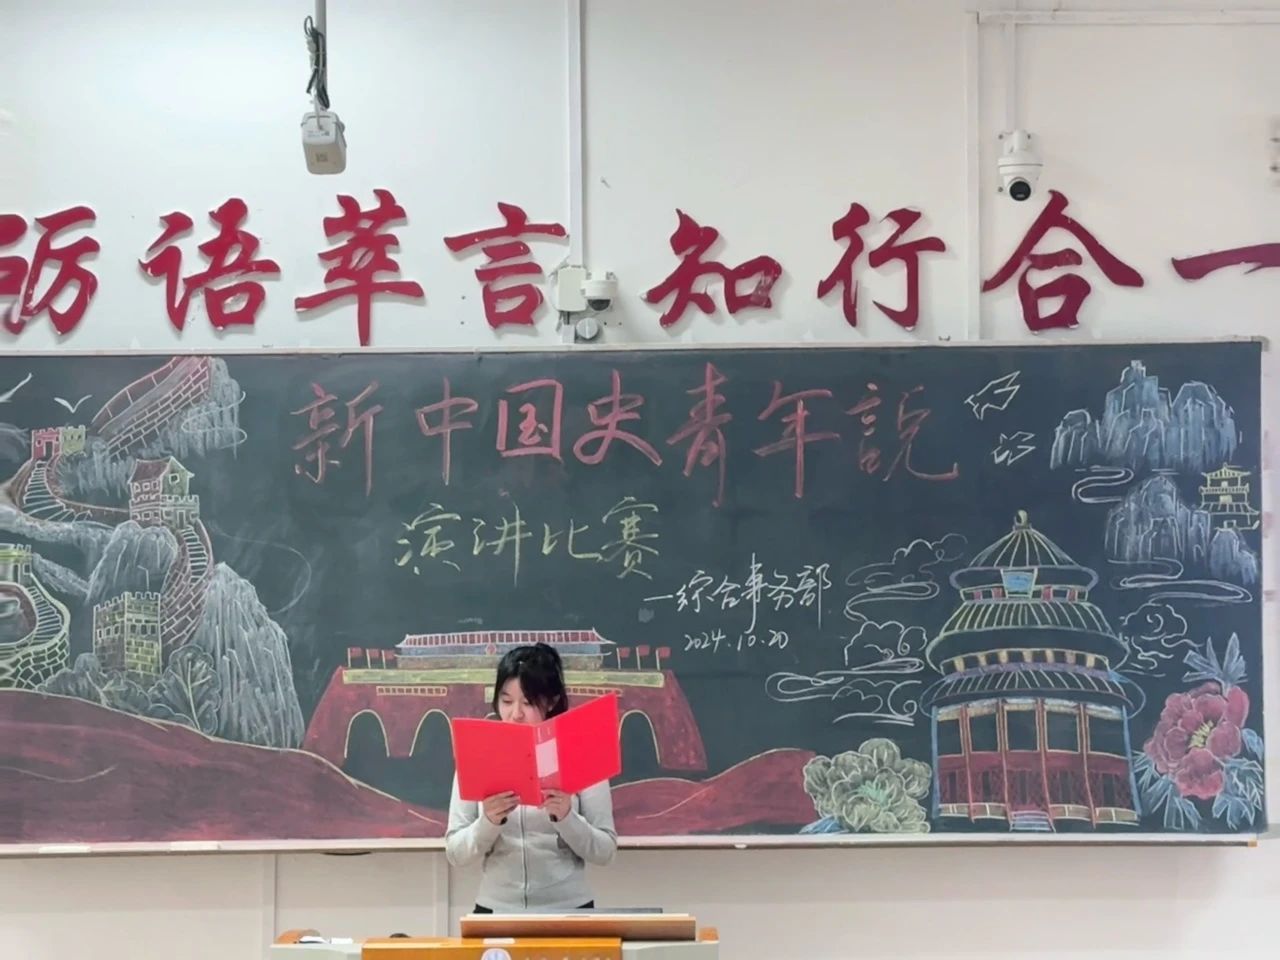 砺语萃言 知行合一
新中国史青年說
演讲比赛
—综合事务部
2024.10.20